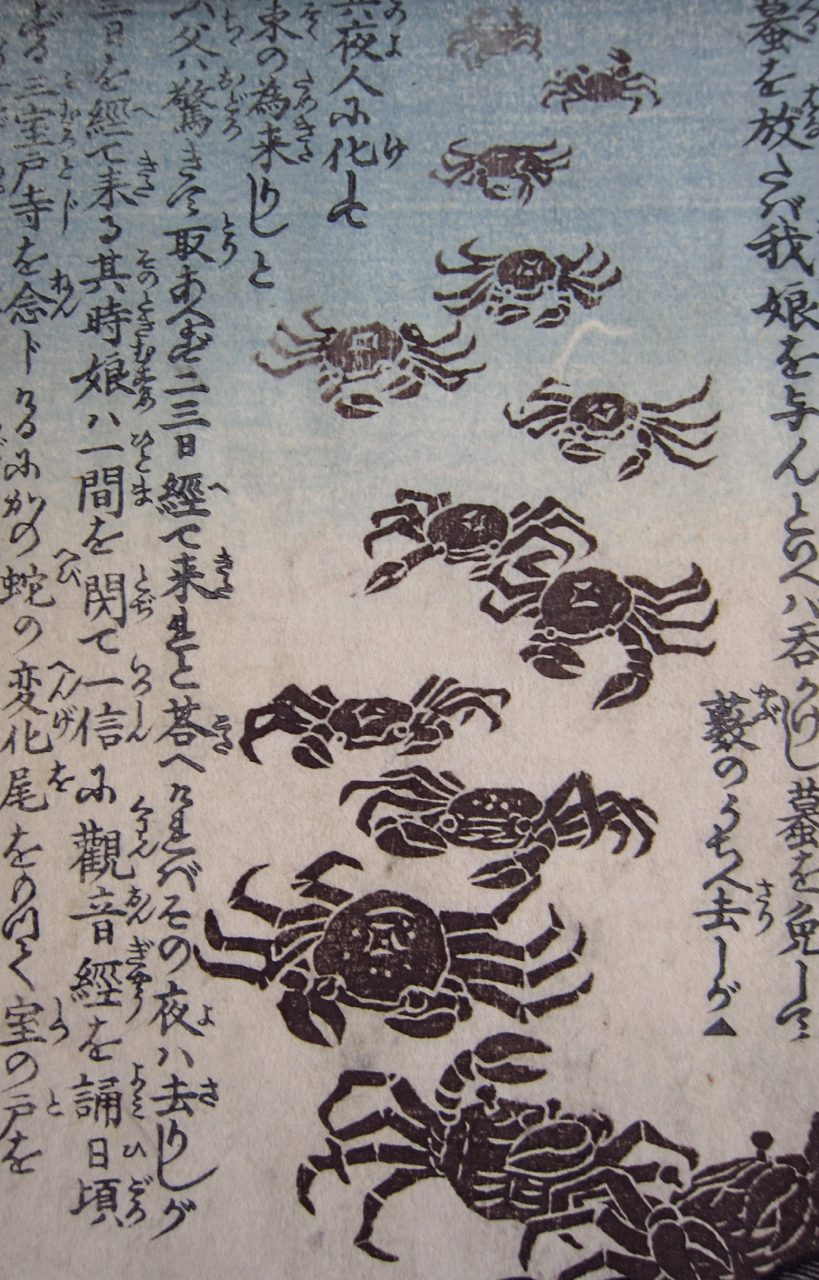 蟇を放さバ我娘を与んといへバ呑かけし蟇を免して
藪のうちへ去しが▲
其夜人に化して
束の為来りしと
父ハ驚きて取あへず二三日経て来れと答へけれバその夜ハ去りしが
三日を經て来る其時娘ハ一間を閇て一信に觀音經を誦日頃
三室戸寺を念じけるにかの蛇の変化尾をのべて室の戸を